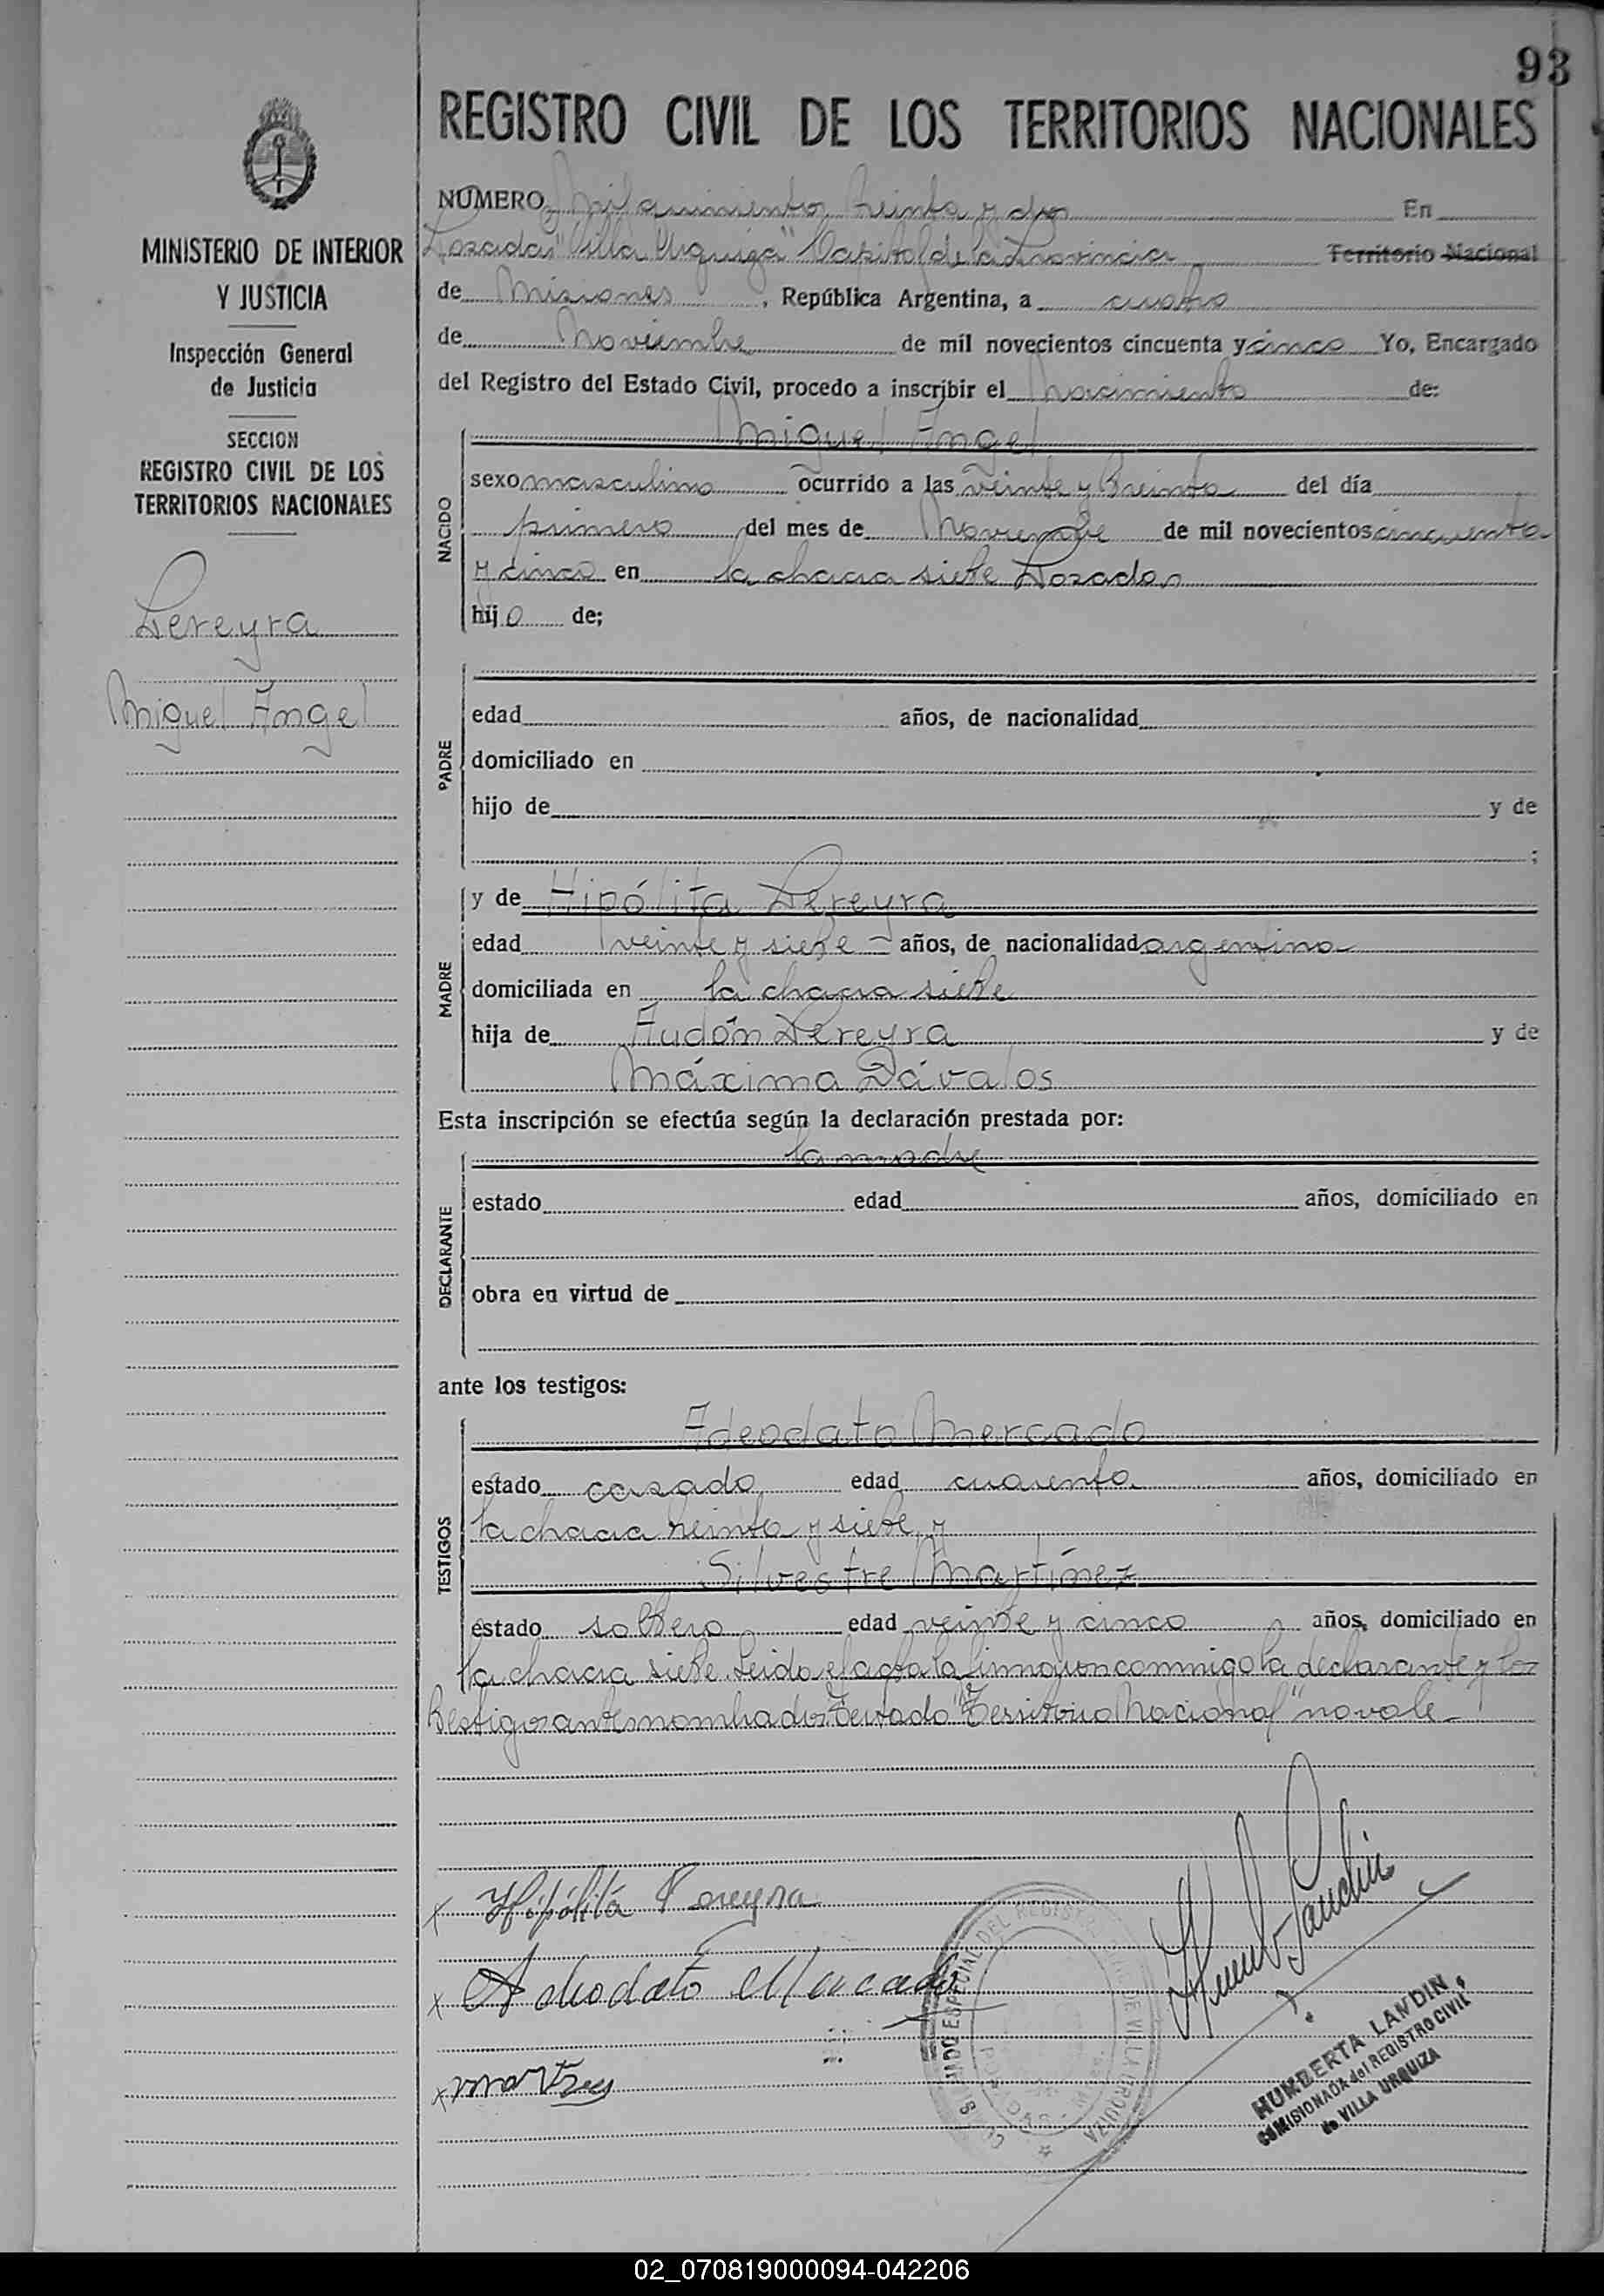 93
REGISTRO CIVIL DE LOS TERRITORIOS NACIONALES
MINISTERIO DE INTERIOR
Y JUSTICIA
Inspección General
de Justicia
SECCION
REGISTRO CIVIL DE LOS
TERRITORIOS NACIONALES
Pereyra
Miguel Angel
NUMERO Mil quinientos treinta y dos En
Posadas "Villa Urquiza" Capital de la Provincia Territorio Nacional
de Misiones, República Argentina, a cuatro
de Noviembre de mil novecientos cincuenta y cinco Yo, Encargado
del Registro del Estado Civil, procedo a inscribir el Nacimiento de:
NACIDO
Miguel Angel
sexo masculino ocurrido a las veinte y treinta del día
primero del mes de Noviembre de mil novecientos cincuenta
y cinco en la chacra siete Posadas
hijo de;
PADRE
edad años, de nacionalidad
domiciliado en
hijo de y de
;
MADRE
y de Hipólita Pereyra
edad veinte y siete - años, de nacionalidad argentina
domiciliada en la chacra siete
hija de Audón Pereyra y de
Máxima Dávalos
Esta inscripción se efectúa según la declaración prestada por:
DECLARANTE
la madre
estado edad años, domiciliado en
obra en virtud de
ante los testigos:
TESTIGOS
Adeodato Mercado
estado casado edad cuarenta años, domiciliado en
la chacra treinta y siete, y
Silvestre Martínez
estado soltero edad veinte y cinco años, domiciliado en
la chacra siete. Leido el acta la firman conmigo la declarante y los
testigos antes nombrados. Testado "Territorio Nacional" no vale.-
x Hipólita Pereyra
x Adeodato Mercado
x
HUMBERTA LANDIN
COMISIONADA del REGISTRO CIVIL
de VILLA URQUIZA
02_070819000094-042206